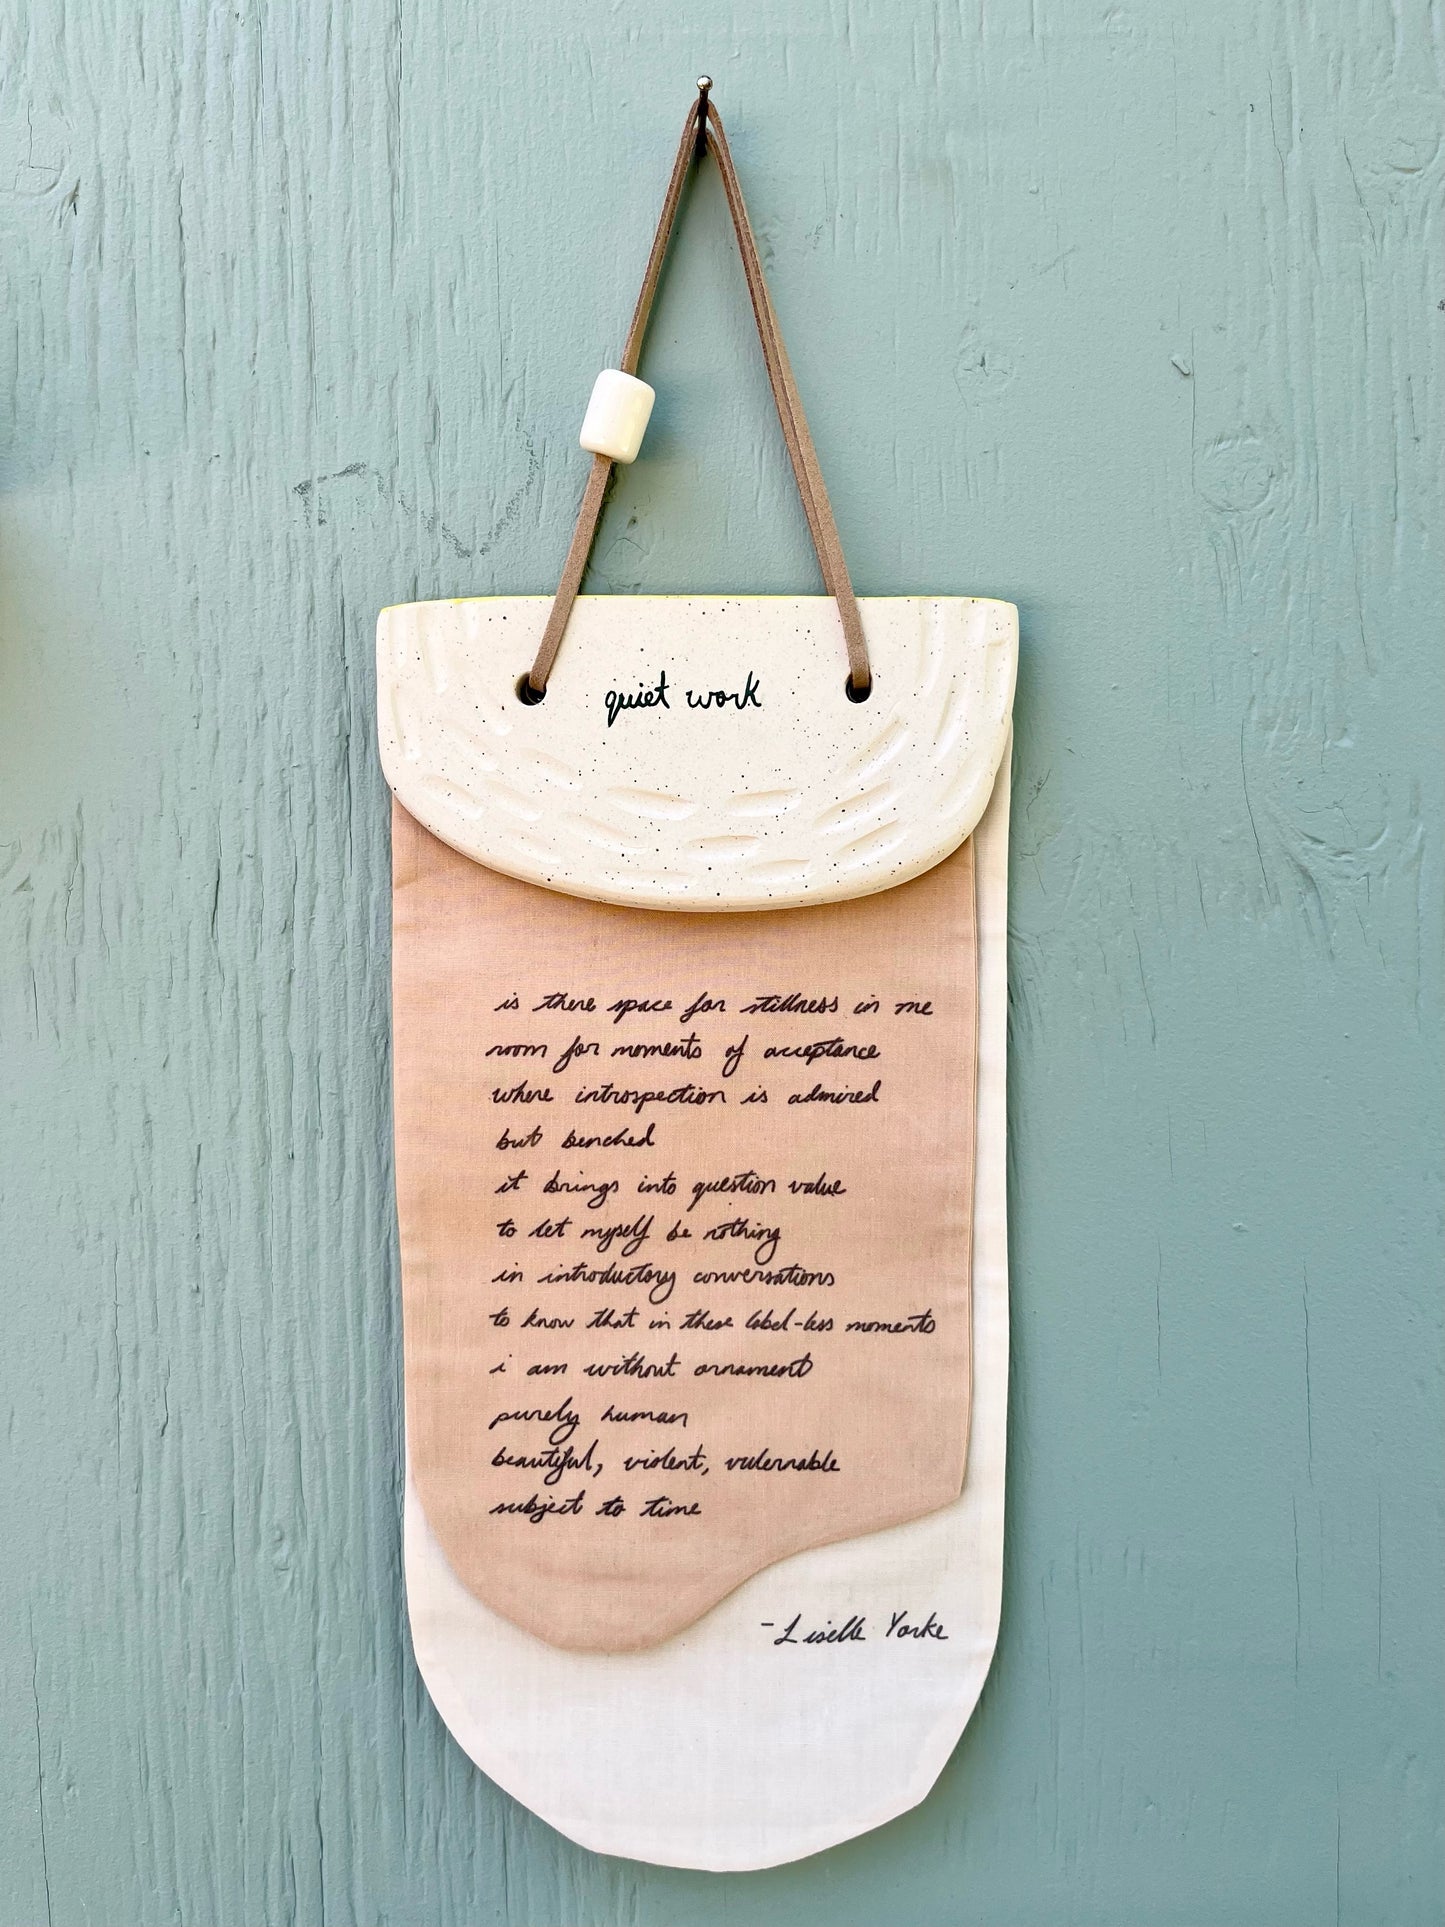 quiet work
is there space for stillness in me
room for moments of acceptance
where introspection is admired
but benched
it brings into question value
to let myself be nothing
in introductory conversations
to know that in these label-less moments
i am without ornament
purely human
beautiful, violent, vulernable
subject to time
- Liselle Yorke